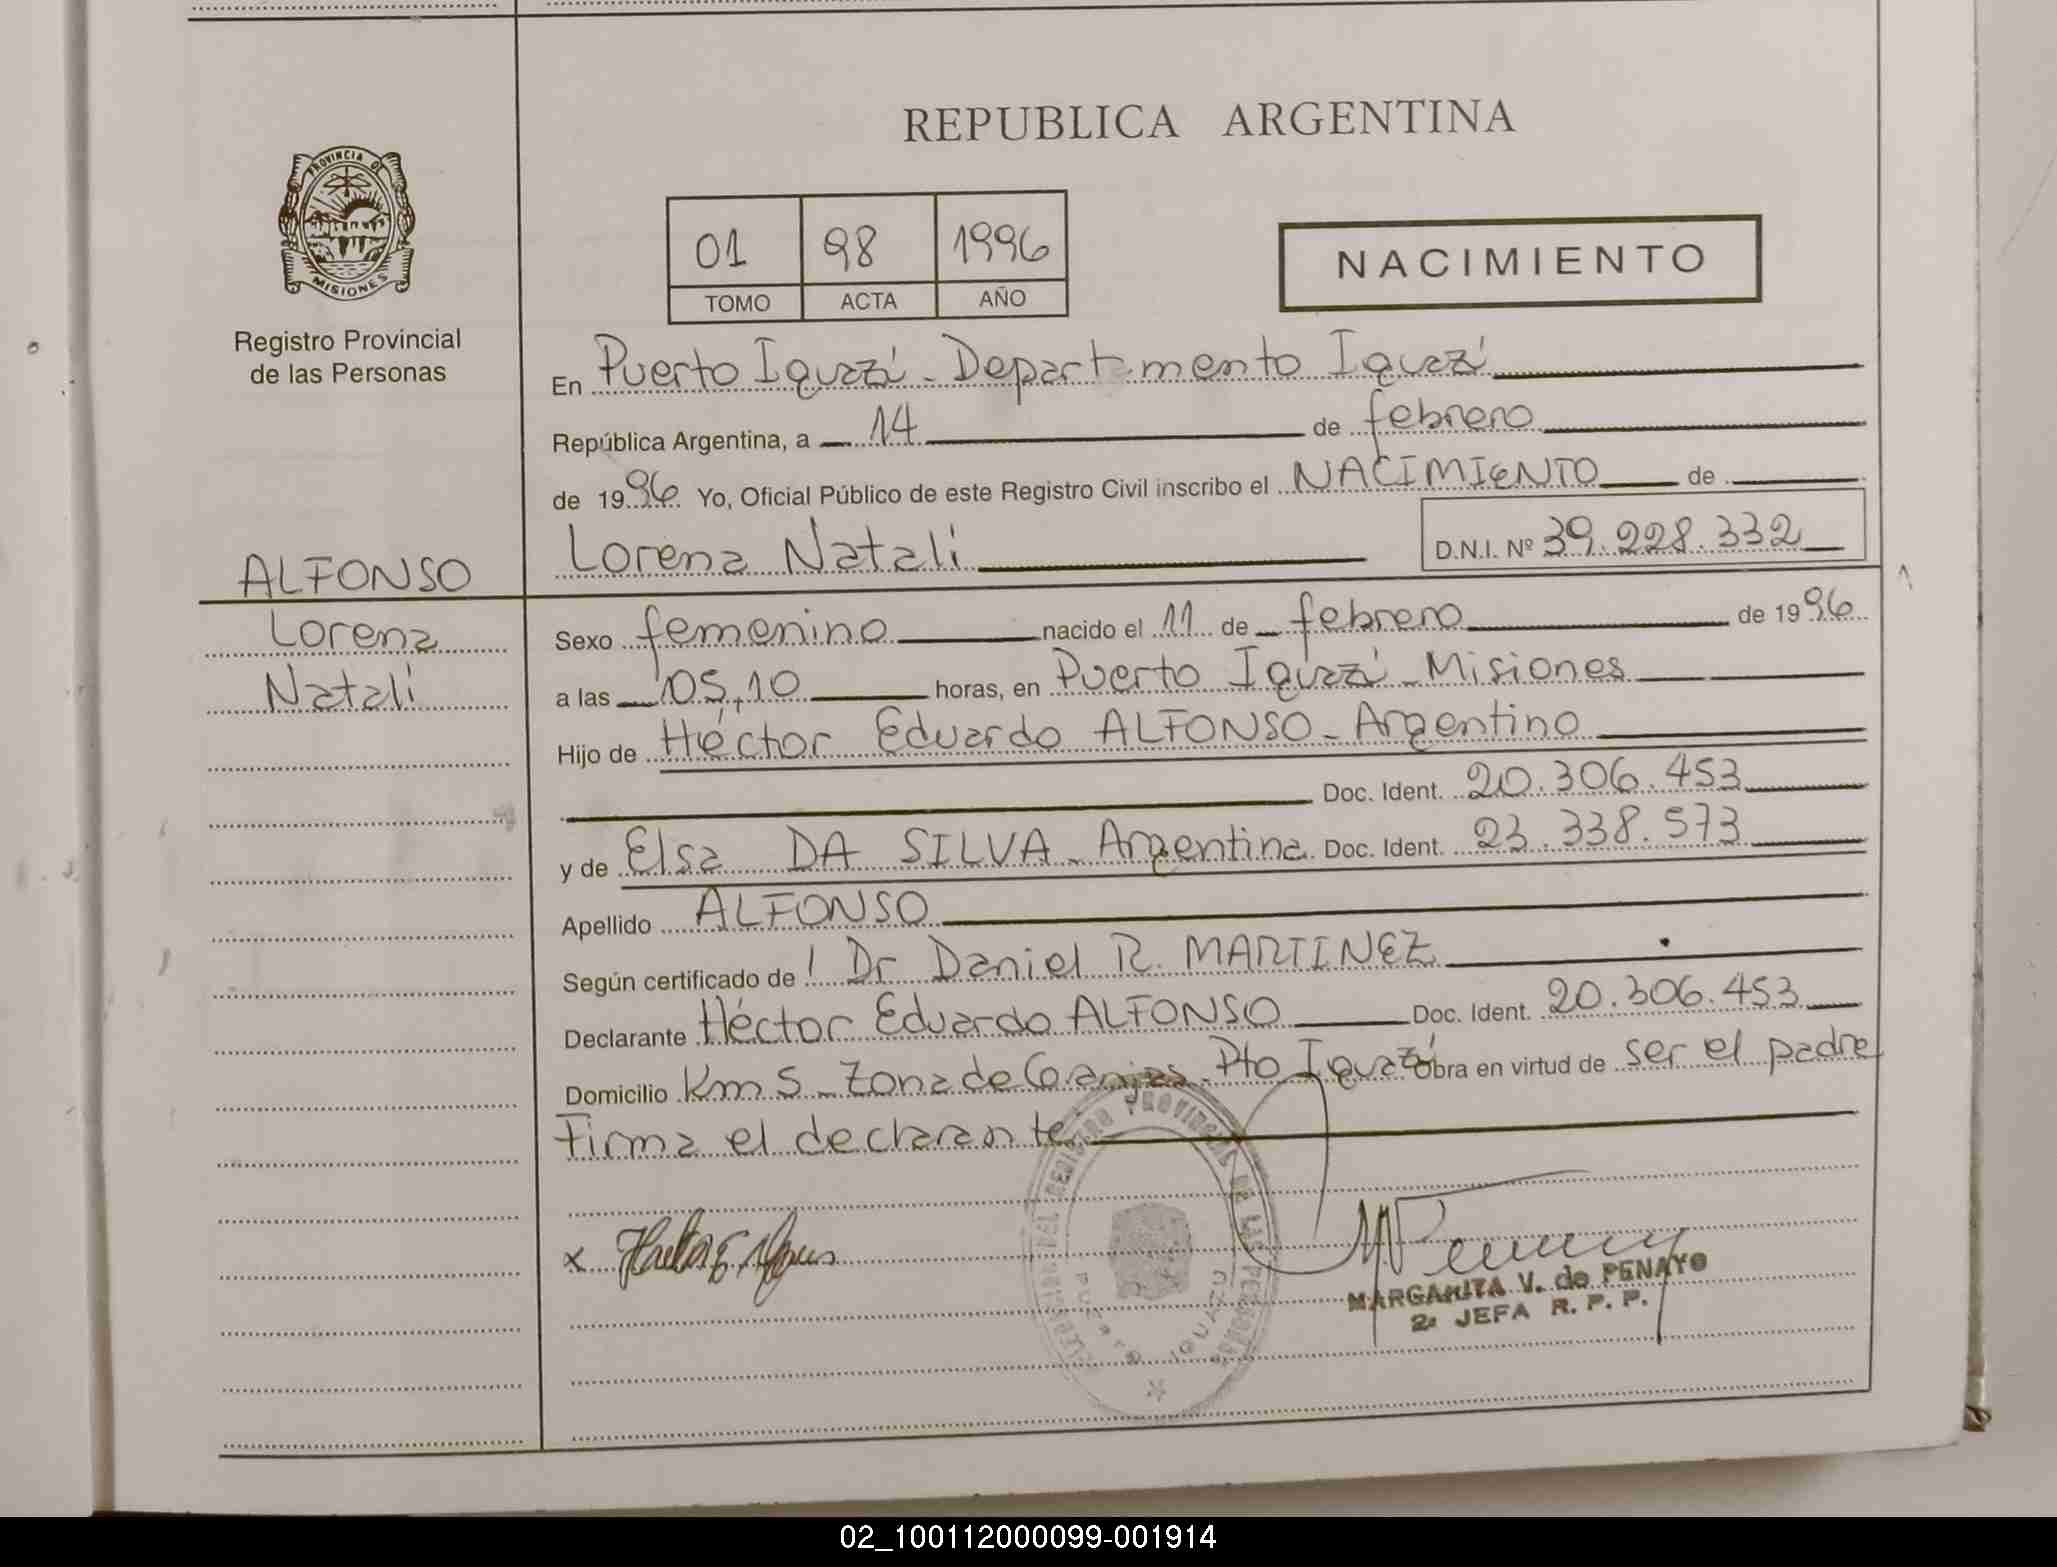 REPUBLICA ARGENTINA
PROVINCIA DE
MISIONES
Registro Provincial
de las Personas
01 98 1996
TOMO ACTA AÑO
NACIMIENTO
En Puerto Iguazú - Departamento Iguazú
República Argentina, a 14 de febrero
de 1996 Yo, Oficial Público de este Registro Civil inscribo el NACIMIENTO de
Lorena Natali D.N.I. Nº 39.228.332
ALFONSO
Lorena
Natali
Sexo femenino nacido el 11 de febrero de 1996
a las 05,10 horas, en Puerto Iguazú - Misiones
Hijo de Héctor Eduardo ALFONSO - Argentino
Doc. Ident. 20.306.453
y de Elsa DA SILVA - Argentina Doc. Ident. 23.338.573
Apellido ALFONSO
Según certificado de Dr Daniel R. MARTINEZ
Declarante Héctor Eduardo ALFONSO Doc. Ident. 20.306.453
Domicilio Km 5 - Zona de Granjas - Pto Iguazú Obra en virtud de ser el padre
Firma el declarante
x
REGISTRO PROVINCIAL DE LAS PERSONAS
PUERTO IGUAZU
MARGARITA V. de PENAYO
2a JEFA R. P. P.
02_100112000099-001914